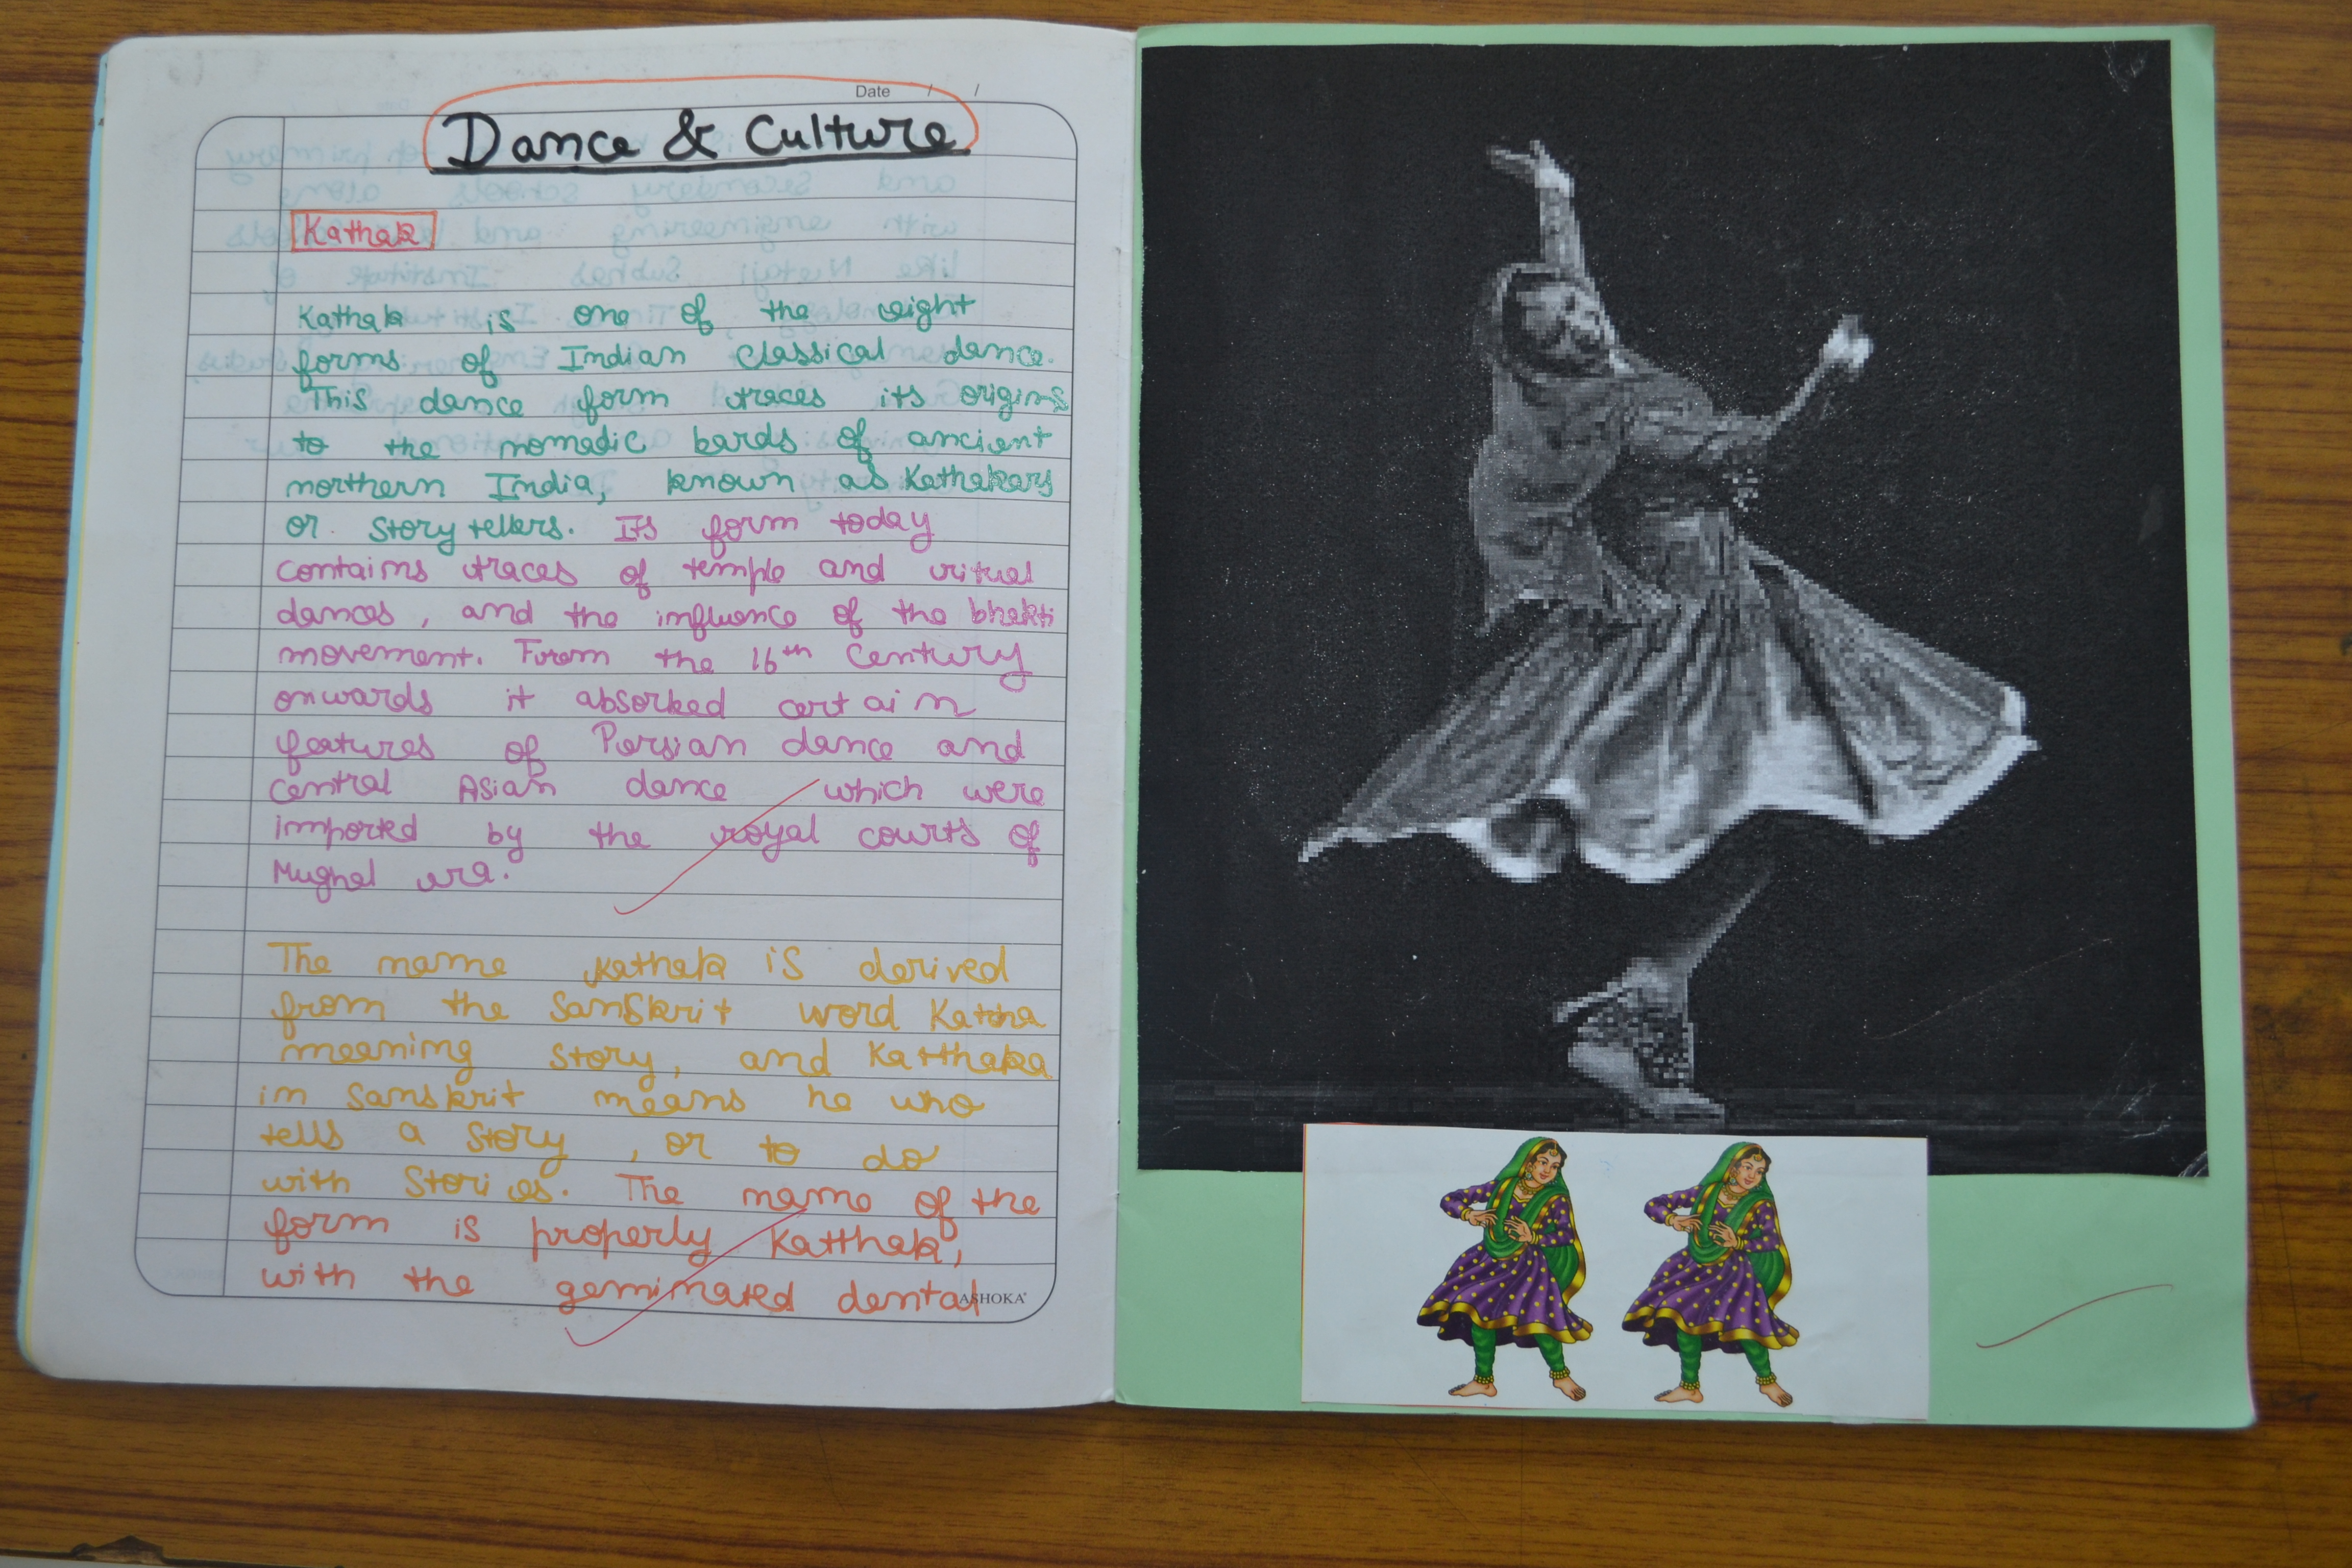 Date / /
Dance & Culture
Kathak
Kathak is one of the eight
forms of Indian classical dance.
This dance form traces its origins
to the nomadic bards of ancient
northern India, known as Kathakars
or story tellers. Its form today
contains traces of temple and ritual
dances, and the influence of the bhakti
movement. From the 16th Century
onwards it absorked certain
features of Persian dance and
central Asian dance which were
imported by the royal courts of
Mughal era.
The name kathak is derived
from the Sanskrit word Katha
meaning story, and Katthaka
in Sanskrit means he who
tells a story, or to do
with Stories. The name of the
form is properly Katthak,
with the geminated dental
ASHOKA